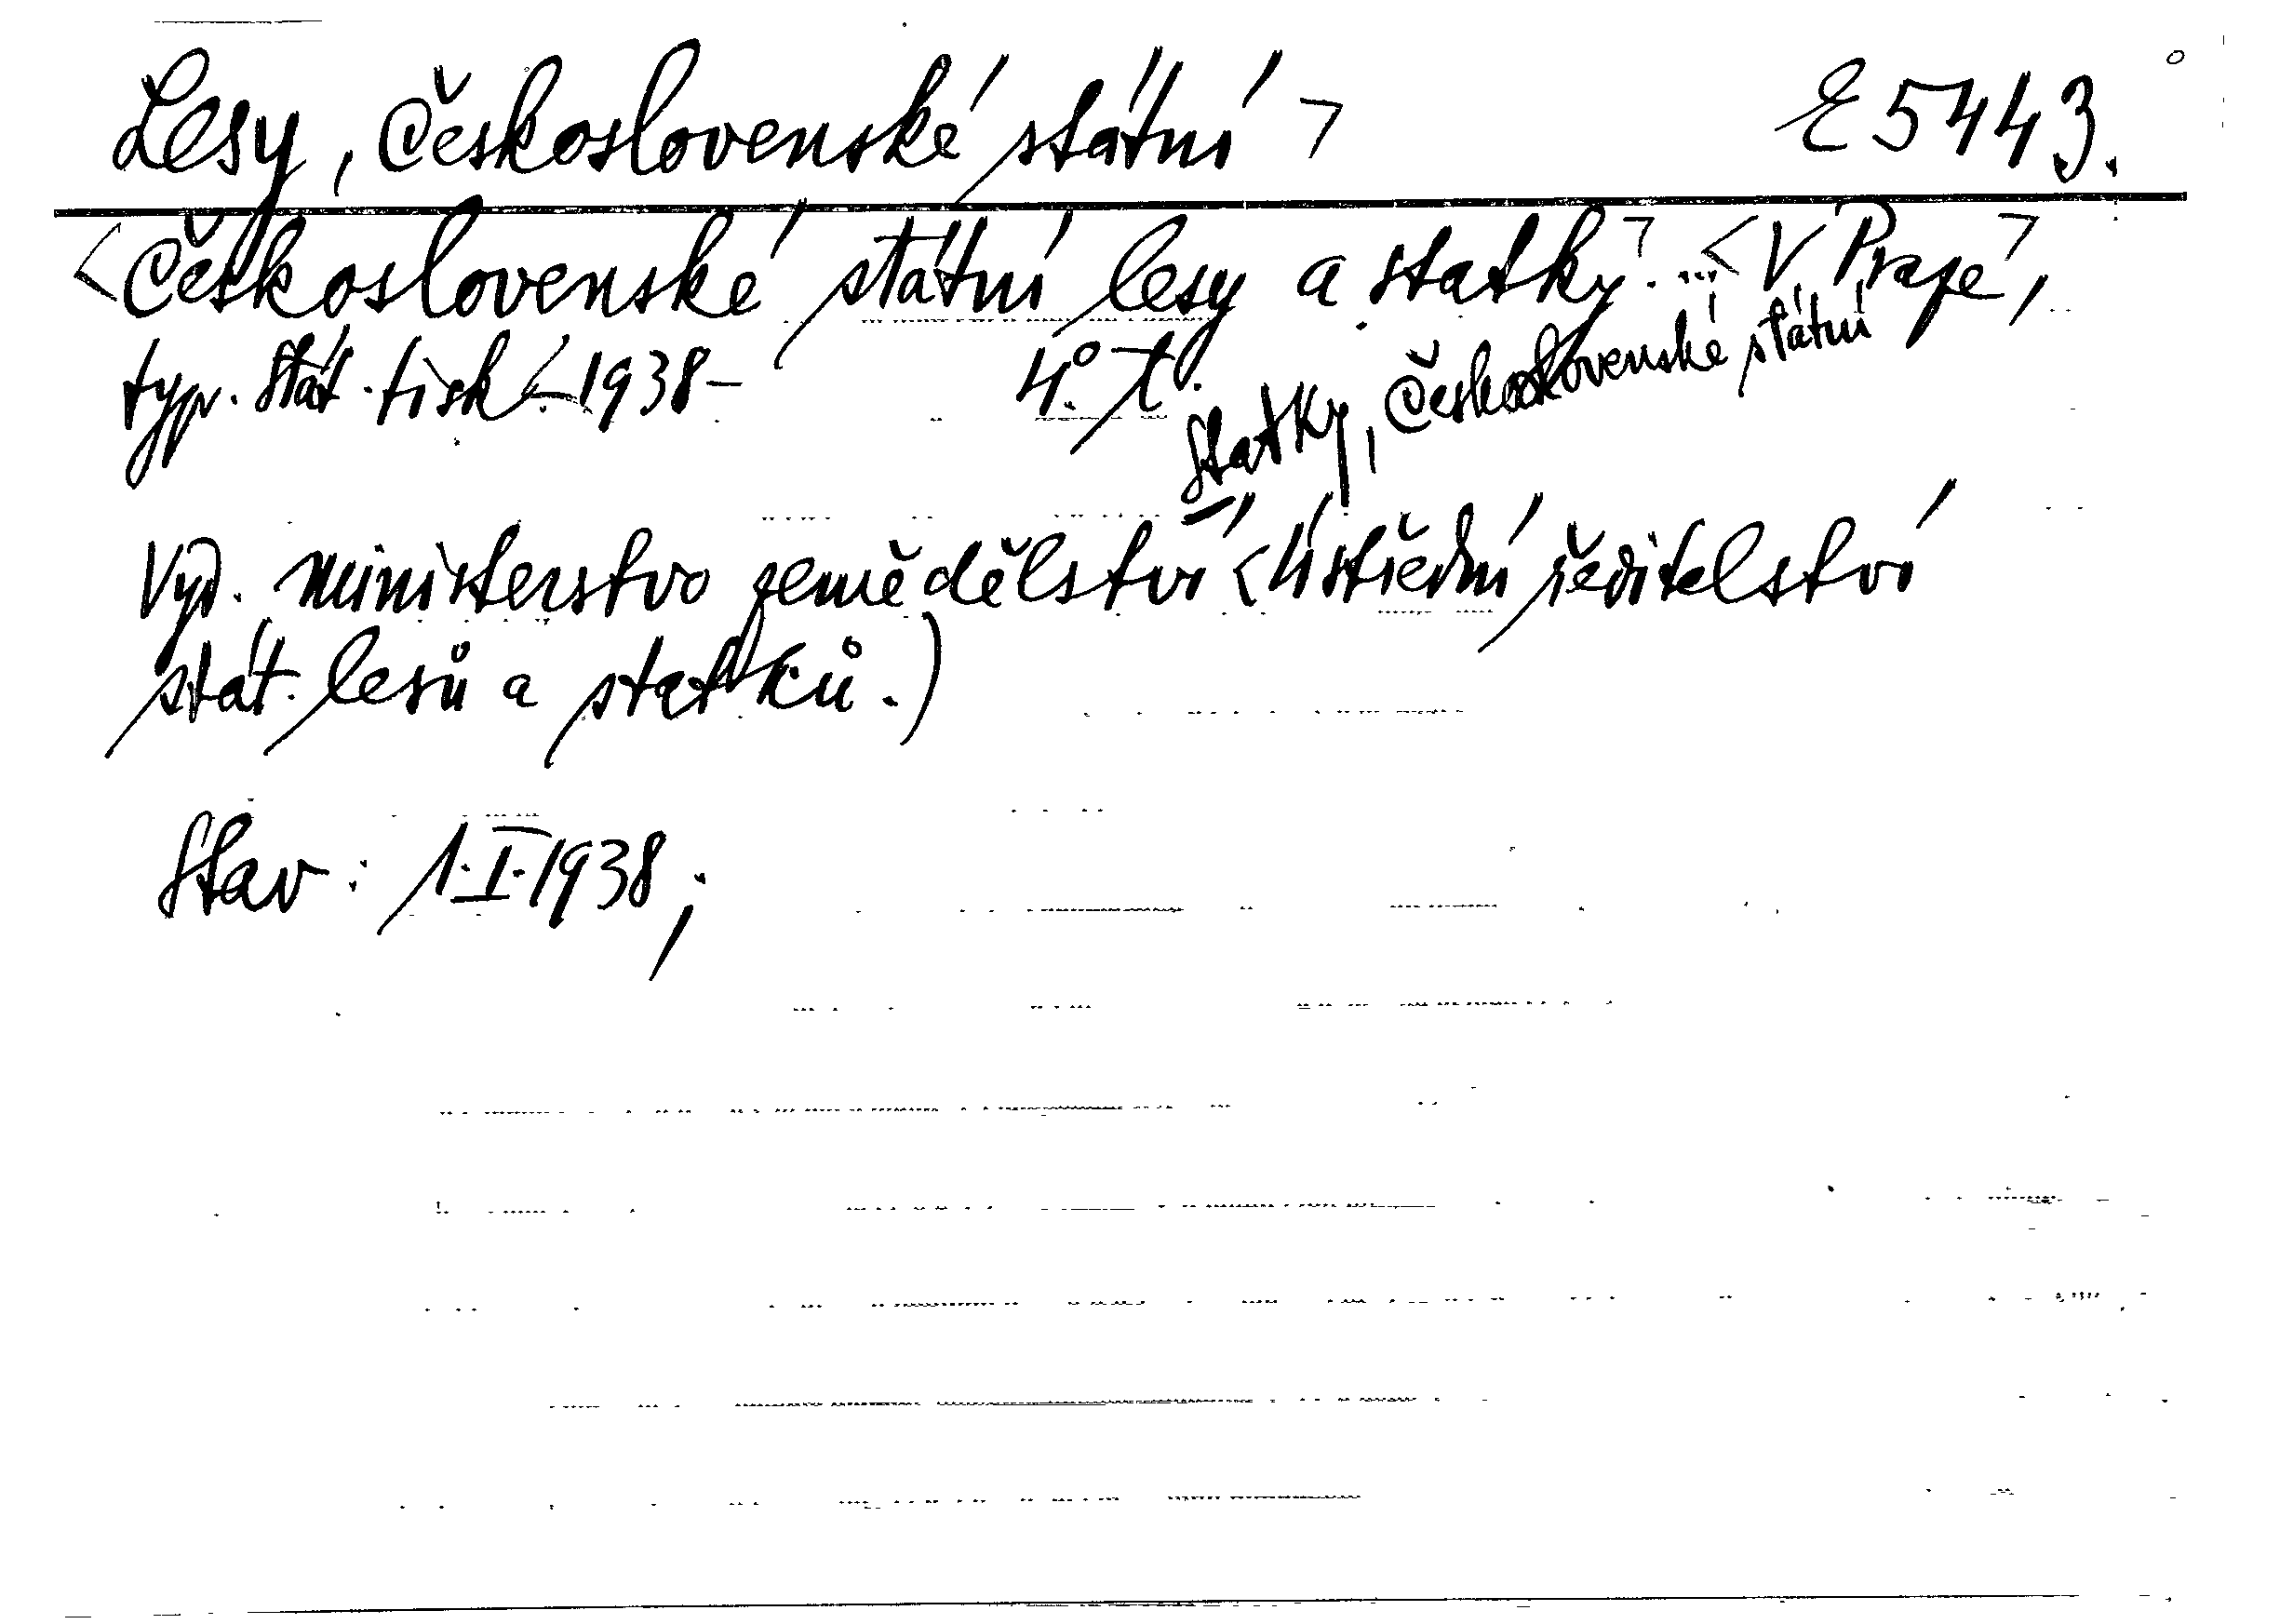 Lesy, Československé státní > E 5443.
<Československé státní lesy a statky>. ... <V Praze>,
typ. Stát. tisk. -1938- 4°. T.
Statky, Československé státní
Vyd. ministerstvo zemědělství <Ústřední ředitelství
stát. lesů a statků.)
Stav: 1.I.1938;